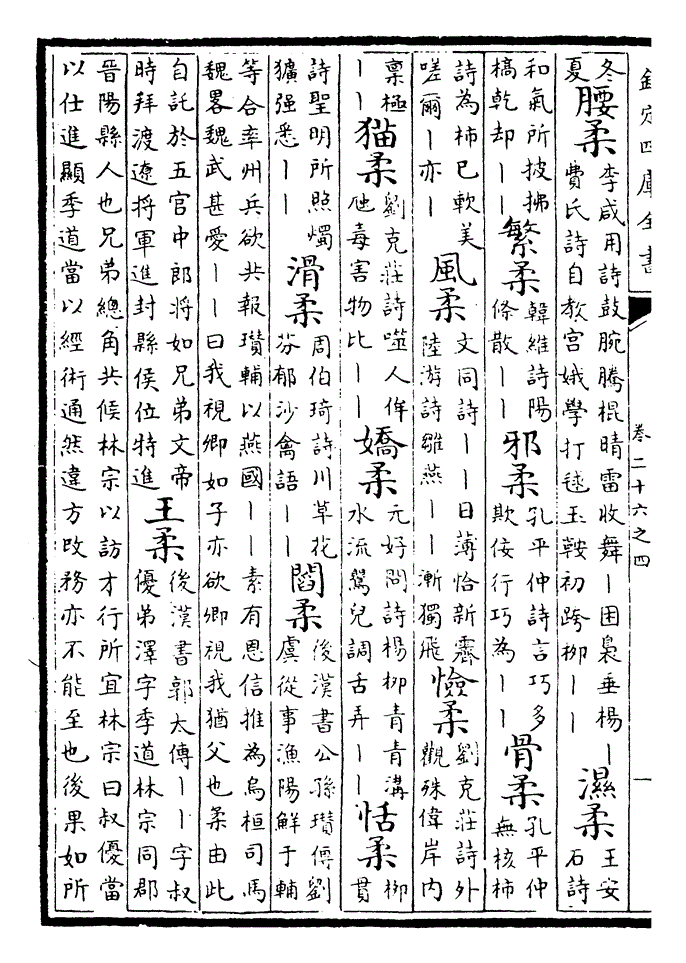 欽定四庫全書 卷二十六之四 一
冬夏腰柔李咸用詩鼓腕騰棍晴雷收舞丨困裊垂楊丨費氏詩自教宮娥學打毬玉鞍初跨柳丨丨濕柔王安石詩
和氣所披拂槁乾却丨丨繁柔韓維詩陽條散丨丨邪柔孔平仲詩言巧多欺佞行巧為丨丨骨柔孔平仲無核柿
詩為柿已軟美嗟爾丨亦丨風柔文同詩丨丨日薄恰新霽陸游詩雛燕丨丨漸獨飛憸柔劉克莊詩外觀殊偉岸内
稟極丨丨猫柔劉克莊詩噬人侔虺毒害物比丨丨嬌柔元好問詩楊柳青青溝水流鶯兒調舌弄丨丨恬柔柳貫
詩聖明所照燭獷强悉丨丨滑柔周伯琦詩川草花芬郁沙禽語丨丨閻柔後漢書公孫瓉傳劉虞從事漁陽鮮于輔
等合率州兵欲共報瓉輔以燕國丨丨素有恩信推為烏桓司馬魏畧魏武甚愛丨丨曰我視卿如子亦欲卿視我猶父也柔由此
自託於五官中郎將如兄弟文帝時拜渡遼將軍進封縣侯位特進王柔後漢書郭太傳丨丨字叔優弟澤字季道林宗同郡
晉陽縣人也兄弟總角共候林宗以訪才行所宜林宗曰叔優當以仕進顯季道當以經術通然違方改務亦不能至也後果如所